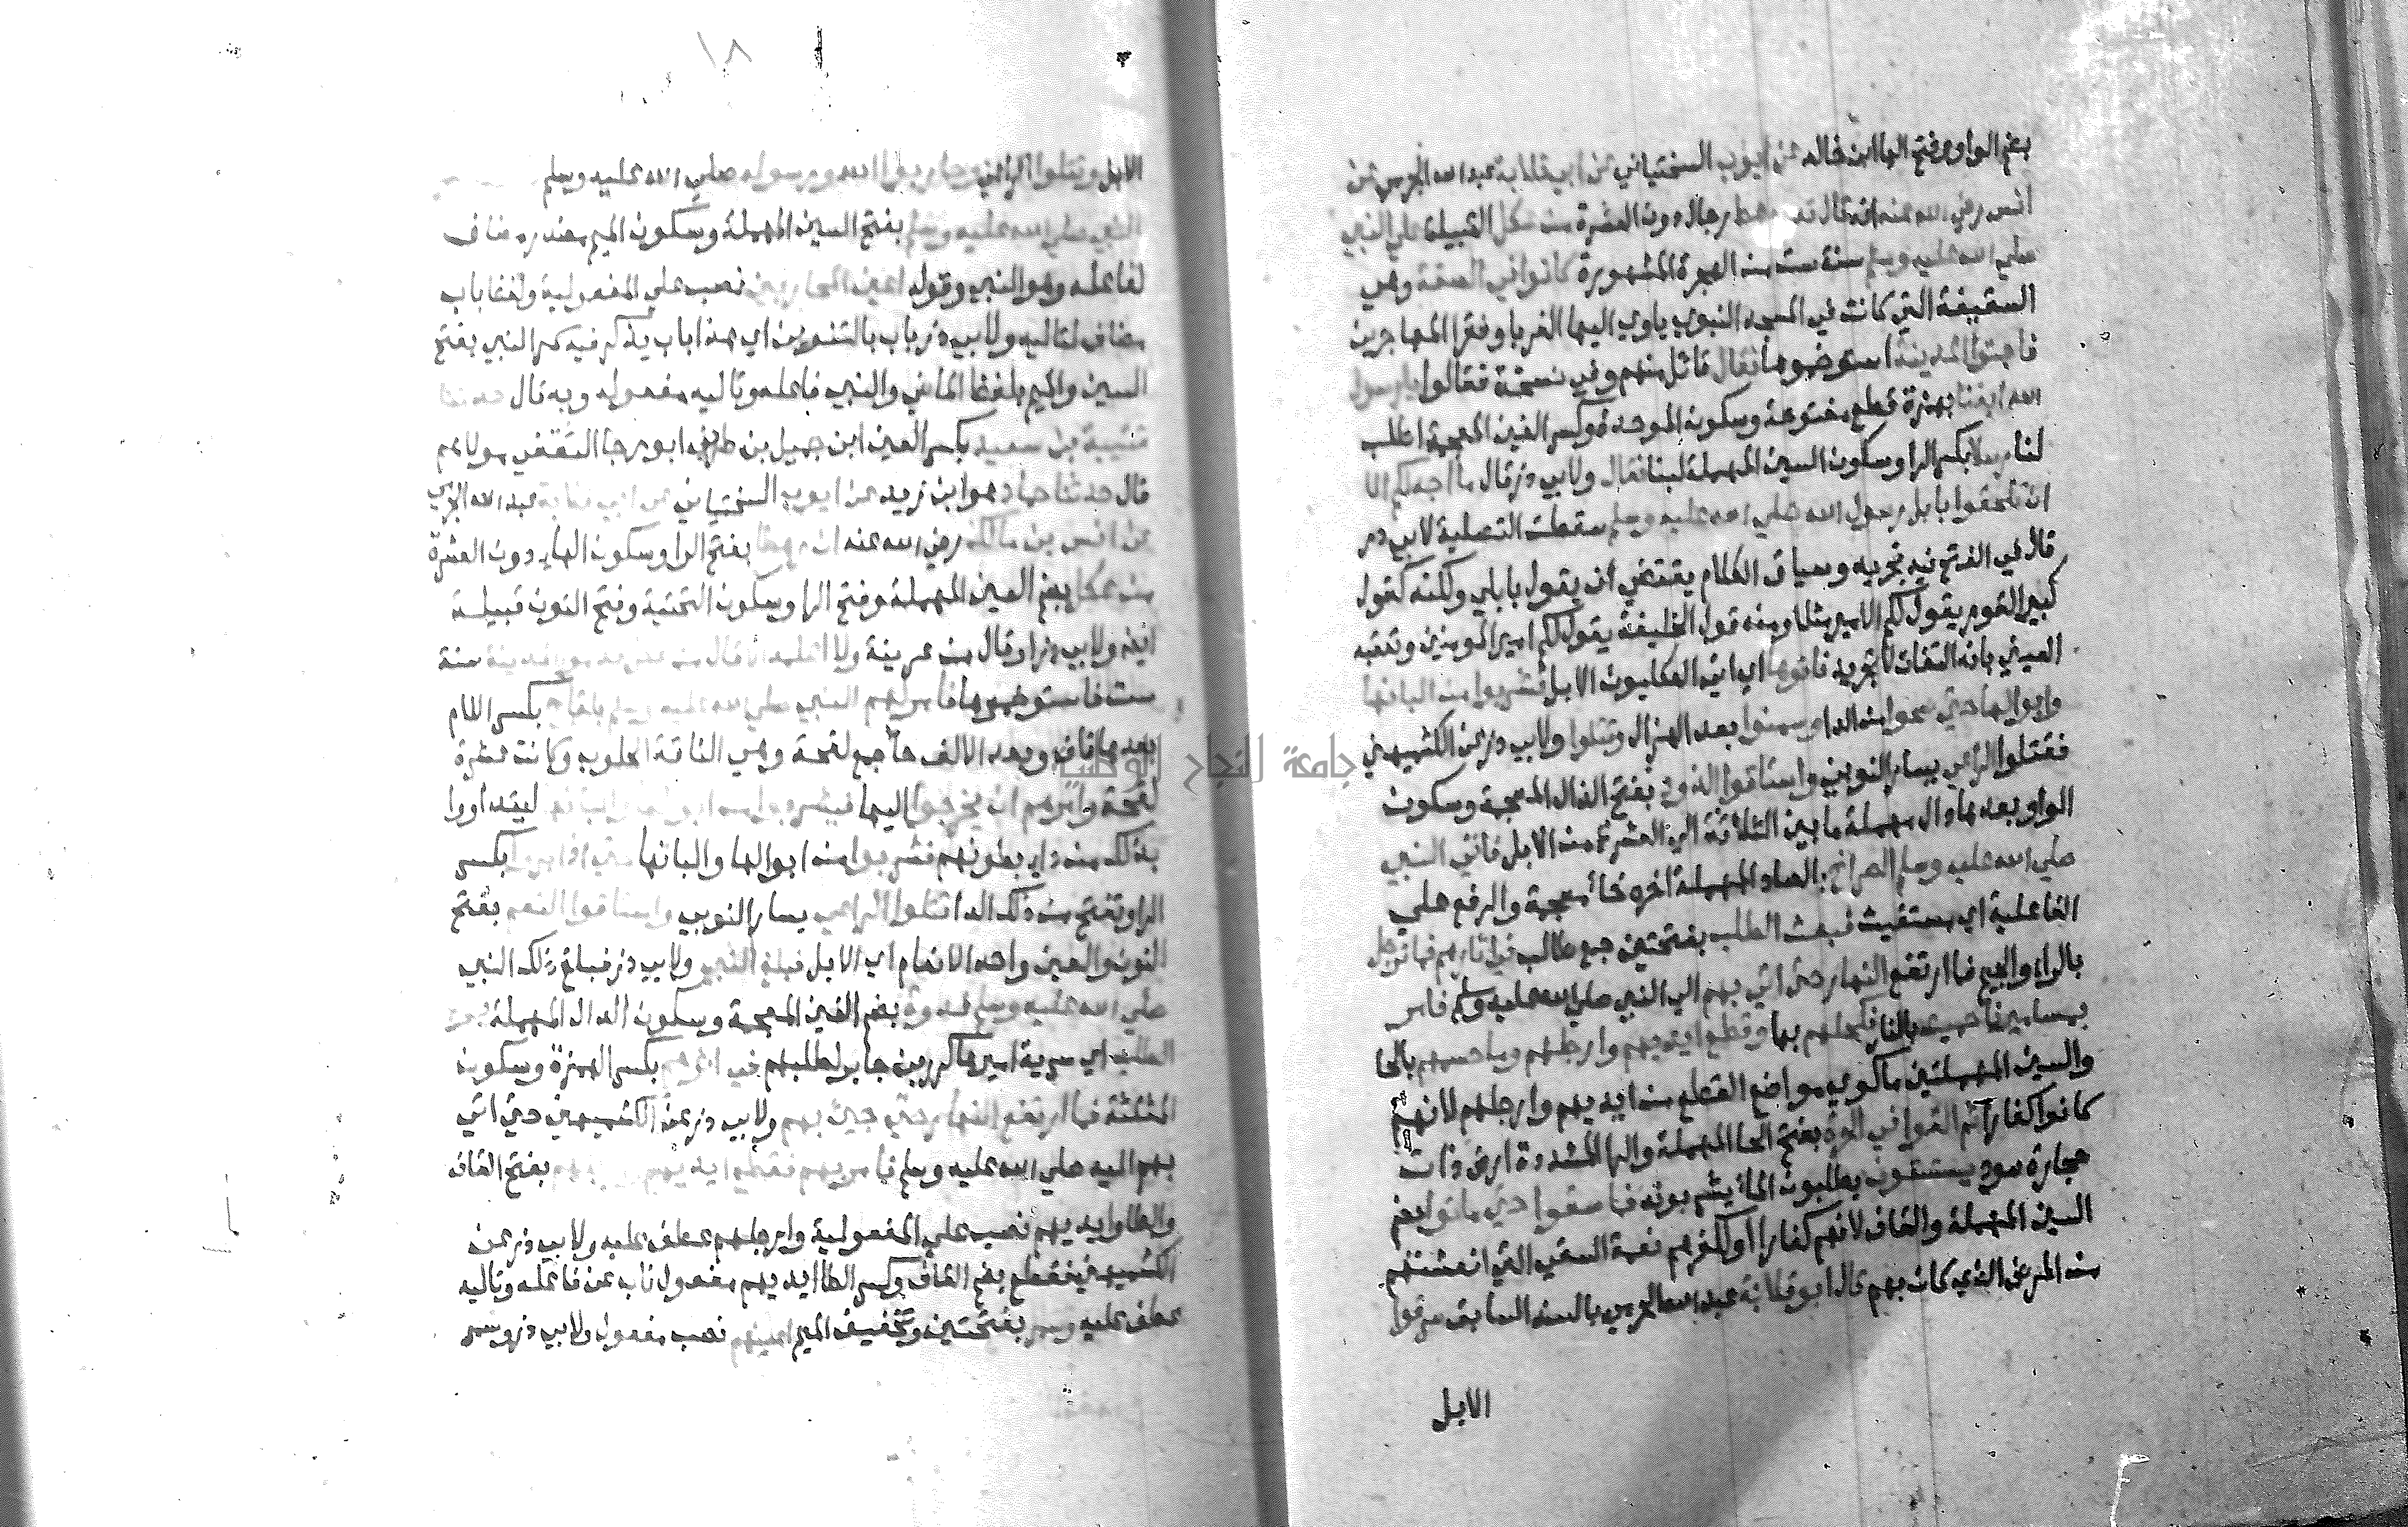 بضم الواو وفتح الها ابن خالد عن ايوب السختياني عن ابي قلابة عبد الله الجرمي عن
انس رضي الله عنه انه قال قدم رهط رجال دون العشرة من عكل القبيلة علي النبي
صلي الله عليه وسلم سنة ست من الهجرة المشهورة كانوا في الصفة وهي
السقيفة التي كانت في المسجد النبوي ياوي اليها الغربا وفقرا المهاجرين
فاجتووا المدينة استوخموها فقال قائل منهم وفي نسخة فقالوا يا رسول
الله ابغنا بهمزة قطع مفتوحة وسكون الموحدة وكسر الغين المعجمة اطلب
لنا رسلا بكسر الرا وسكون السين المهملة لبنا فقال ولابي ذر قال ما اجد لكم الا
ان تلحقوا بابل رسول الله صلي الله عليه وسلم سقطت التصلية لابي ذر
قال في الفتح فيه تجريد وسياق الكلام يقتضي ان يقول بابلي ولكنه كقول
كبير القوم يقول لكم الامير مثلا ومنه قول الخليفة يقول لكم امير المومنين وتعقبه
العيني بانه التفات لا تجريد فاتوها اي اتي العكليون الابل فشربوا من البانها
وابوالها حتي صحوا من الدا وسمنوا بعد الهزال وقتلوا ولابي ذر عن الكشميهني
فقتلوا الراعي يسار النوبي واستاقوا الذود بفتح الذال المعجمة وسكون
الواو بعدها دال مهملة ما بين الثلاثة الي العشرة من الابل فاتي النبي
صلي الله عليه وسلم الصرائخ بالصاد المهملة اخره خا معجمة والرفع علي
الفاعلية اي مستغيث فبعث الطلب بفتحتين جمع طالب في اثارهم فما ترجل
بالراء والجيم فما ارتفع النهار حتى اتي بهم الي النبي صلي الله عليه وسلم فامر
بمسامير فاحميت بالنار فكحلهم بها وقطع ايديهم وارجلهم وما حسمهم بالحا
والسين المهملتين ما كوي مواضع القطع من ايديهم وارجلهم لانهم
كانوا كفارا ثم القوا في الحرة بفتح الحا المهملة والرا المشددة ارض ذات
حجارة سود يستسقون يطلبون الما يشربونه فما سقوا حتي ماتوا بضم
السين المهملة والقاف لانهم كفارا او لكفرهم نعمة السقي التي انعشتهم
من المرض الذي كان بهم قال ابو قلابة عبد الله الجرمي بالسند السابق سرقوا
الابل
١٨
الابل وقتلوا الراعي وحاربوا الله ورسوله صلي الله عليه وسلم
النبي صلي الله عليه وسلم بفتح السين المهملة وسكون الميم مصدر مضاف
لفاعله وهو النبي وقوله اعين المحاربين نصب علي المفعولية ولفظ باب
مضاف لتاليه ولابي ذر باب بالتنوين اي هذا باب يذكر فيه سمر النبي بفتح
السين والميم بلفظ الماضي والنبي فاعله وتاليه مفعوله وبه قال حدثنا
قتيبة بن سعيد بكسر العين ابن جميل بن طريف ابو رجا الثقفي مولاهم
قال حدثنا حماد هو ابن زيد عن ايوب السختياني عن ابي قلابة عبد الله الجرمي
عن انس بن مالك رضي الله عنه ان رهطا بفتح الرا وسكون الها دون العشرة
من عكل بضم العين المهملة وفتح الرا وسكون التحتية وفتح النون قبيلة
ايض ولابي ذر او قال من عرينة ولا اعلمه الا قال من عكل قدموا المدينة سنة
ست فاستوخموها فامر لهم النبي صلي الله عليه وسلم بلقاح بكسر اللام
بعدها قاف وبعد الالف حا جمع لقحة وهي الناقة الحلوب وكانت عشرة
لقحة وامرهم ان يخرجوا اليها فيشربوا من ابوالها والبانها ليتداووا
بذلك من داء بطونهم فشربوا من ابوالها والبانها حتي اذا برئوا بكسر
الرا وتفتح من ذلك الدا قتلوا الراعي يسار النوبي واستاقوا النعم بفتح
النون والعين واحد الانعام اي الابل فبلغ النبي ولابي ذر فبلغ ذلك النبي
صلي الله عليه وسلم غدوة بضم الغين المعجمة وسكون الدال المهملة فبعث
الطلب اي سرية اميرها كرز بن جابر لطلبهم في اثرهم بكسر الهمزة وسكون
المثلثة فما ارتفع النهار حتي جيئ بهم ولابي ذر عن الكشميهني حتي اتي
بهم اليه صلي الله عليه وسلم فامر بهم فقطع ايديهم وارجلهم بفتح القاف
والطا وايديهم نصب علي المفعولية وارجلهم عطف عليه ولابي ذر عن
الكشميهني فقطع بضم القاف وكسر الطا ايديهم مفعول ناب عن فاعله وتاليه
عطف عليه وسمر بفتحتين وتخفيف الميم اعينهم نصب مفعول ولابي ذر وسمر
جامعة النجاح الوطنية